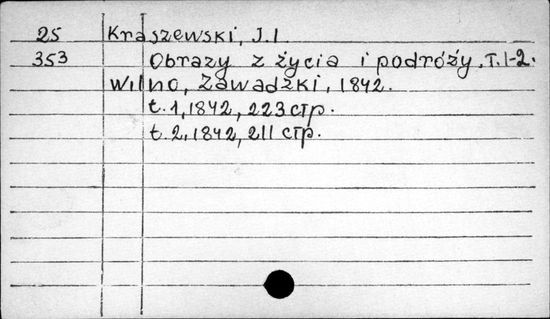 25 Kraszewski, J. I
353 Obrazy z życia i podróży. T. 1-2.
Wilno, Zawadzki, 1842.
t. 1, 1842, 223 стр.
t. 2, 1842, 211 стр.